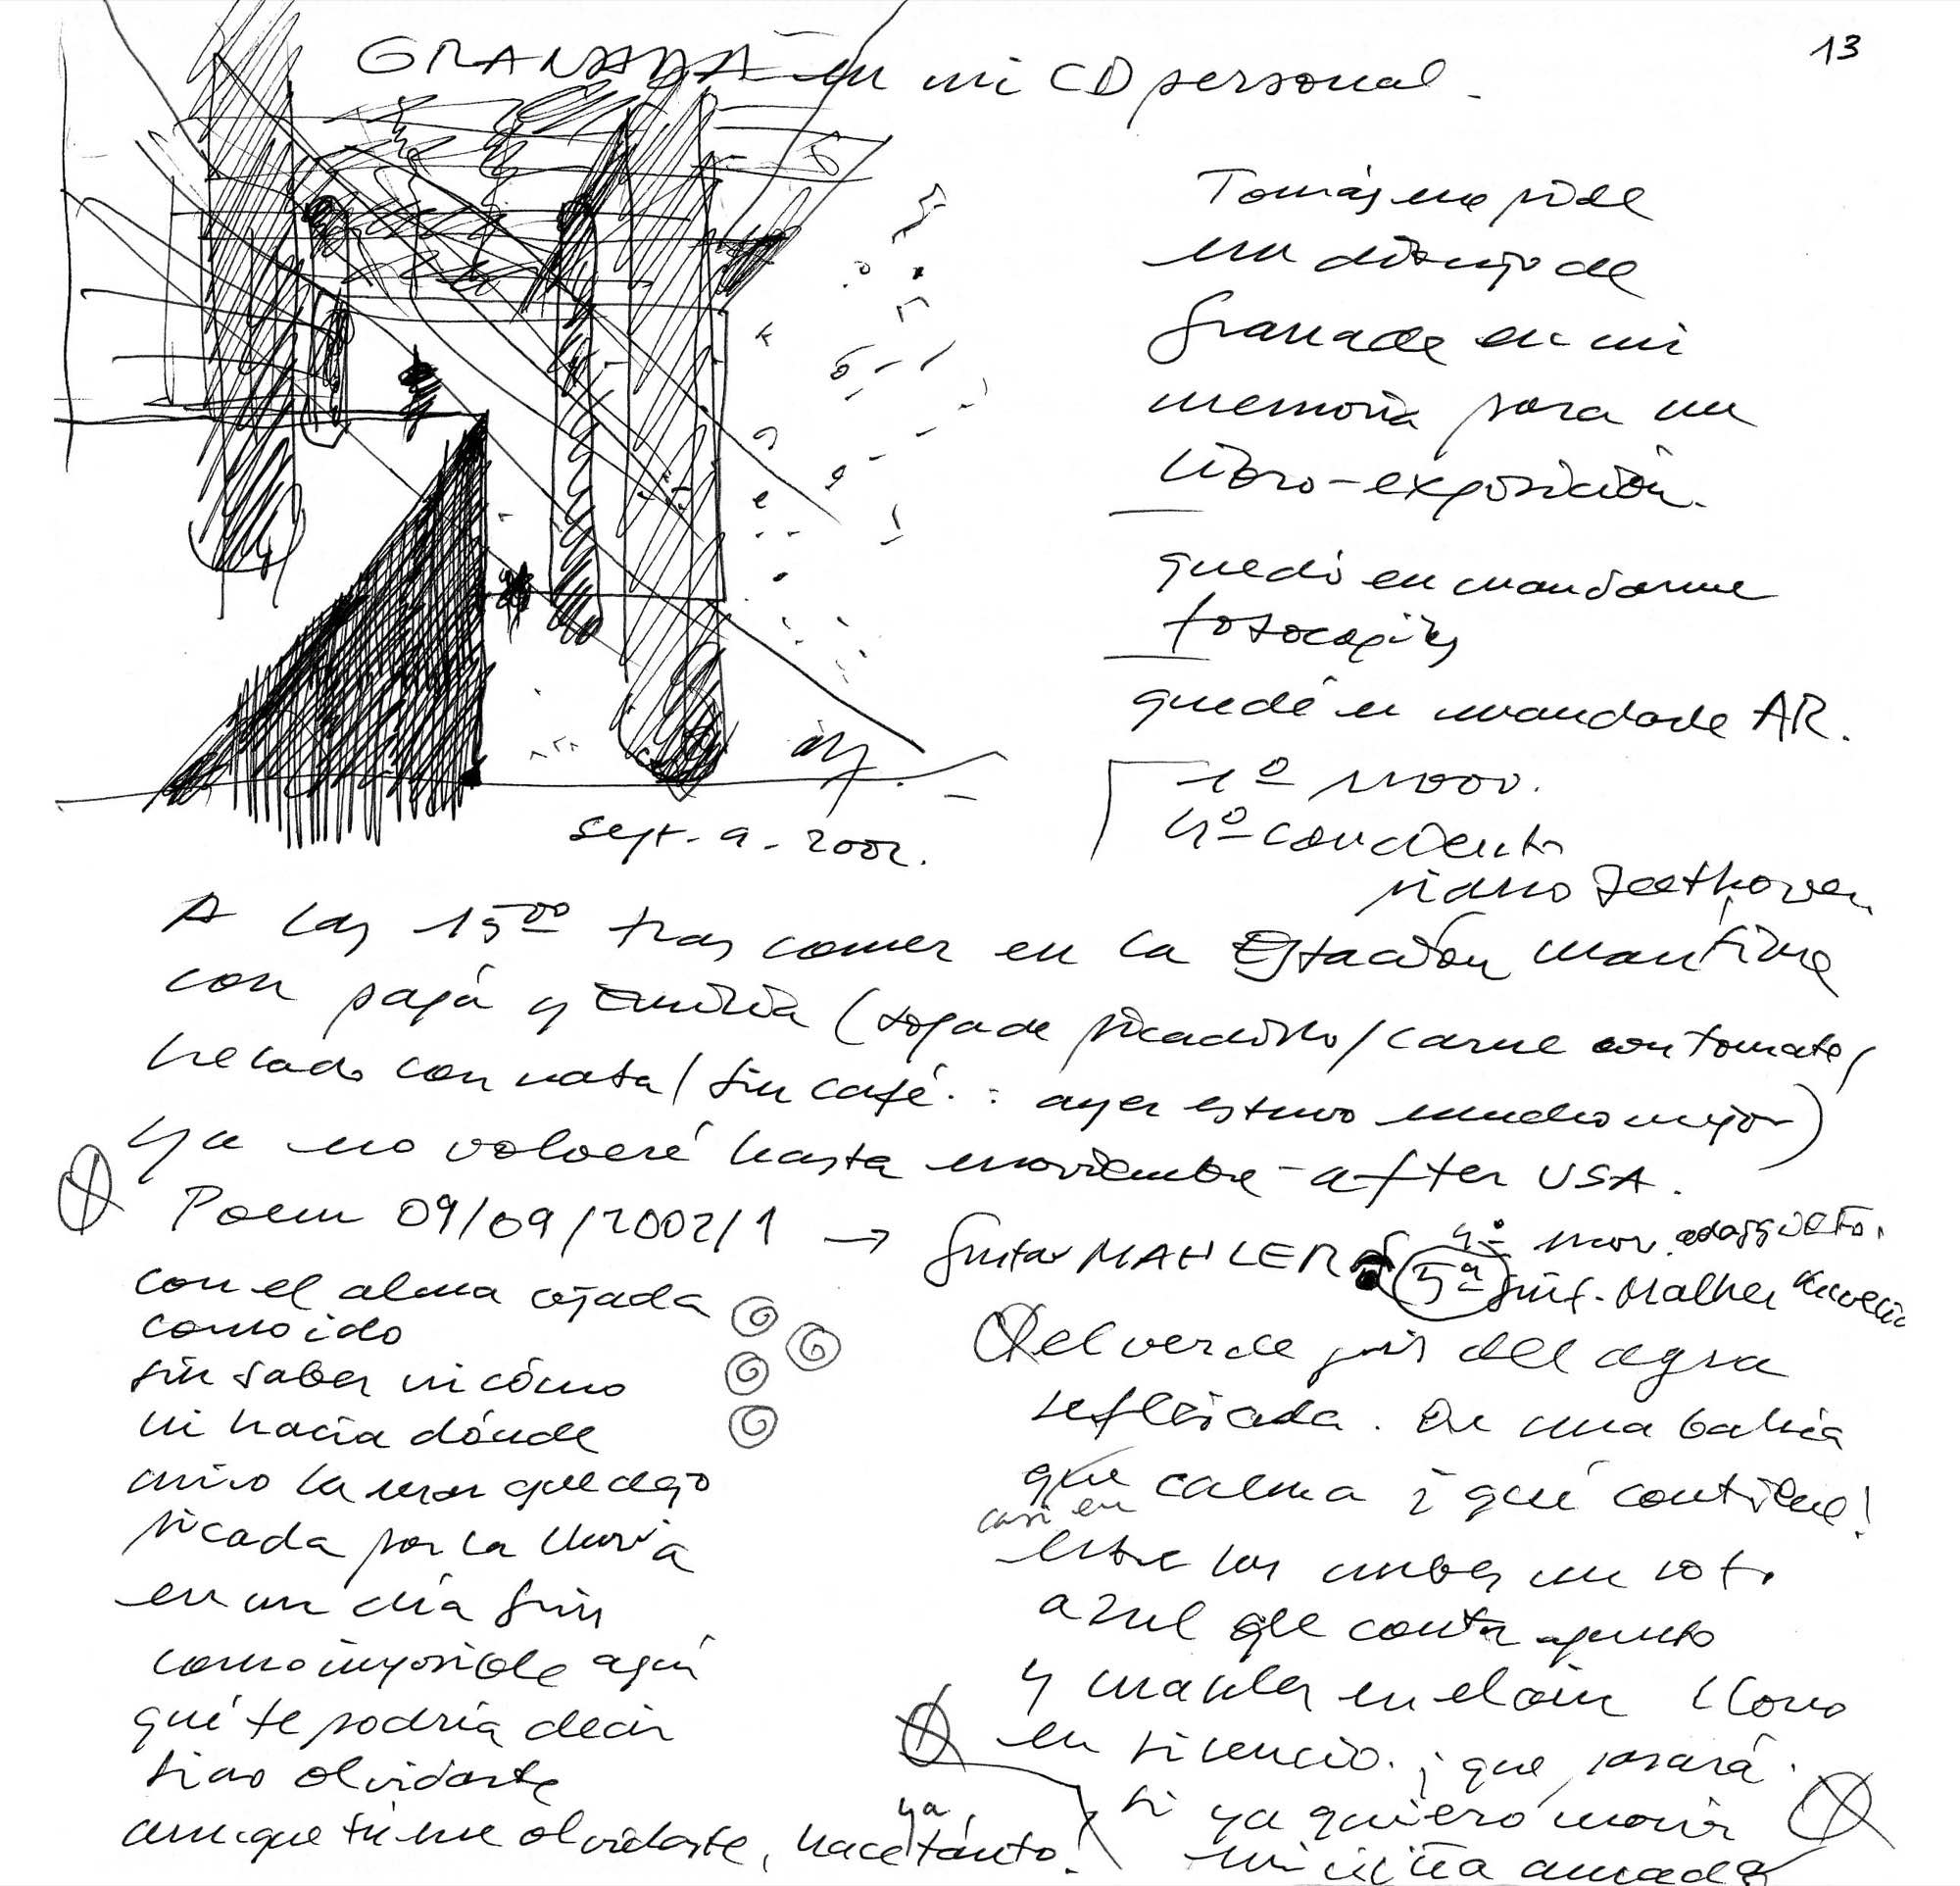 13
GRANADA en mi CD personal.
Tomás me pide
un dibujo de
Granada en mi
memoria para un
libro-exposición.
quedó en mandarme
fotocopias
quedé en mandarle AR.
1º mov.
4º concierto
piano Beethoven
sept. 9. 2002.
A las 15ºº tras comer en la Estación Marítima
con papá y Emilia (sopa de picadillo/carne con tomate/
helado con nata/sin café. : ayer estuvo mucho mejor)
ya no volveré hasta noviembre - after USA.
Poem 09/09/2002/1 →
con el alma ajada
como ido
sin saber ni cómo
ni hacia dónde
miro la mar que dejo
picada por la lluvia
en un día gris
como imposible aquí
qué te podría decir
sino olvidarte
aunque tú me olvidaste, hace ya tánto!
Gustav MAHLER 4º mov. adaggietto.
5ª sinf. Malher
el verde gris del agua
reflejada. En una bahía
que calma ¡qué contiene!
casi en
entre las nubes un roto
azul qe contrapunto
y mahler en el aire lloro
en silencio. ¡que pasará
si ya quiero morir
mi niña amada